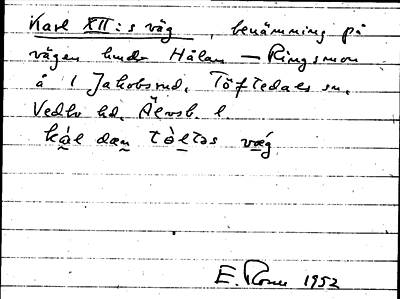 Karl XII:s väg, benämning på
vägen Hålan — Ringsmon
å 1 Jakobsrud, Töftedals sn,
Vedbo hd, Älvsb. l.
kál dan tòltəs væg
E. Rosen 1952